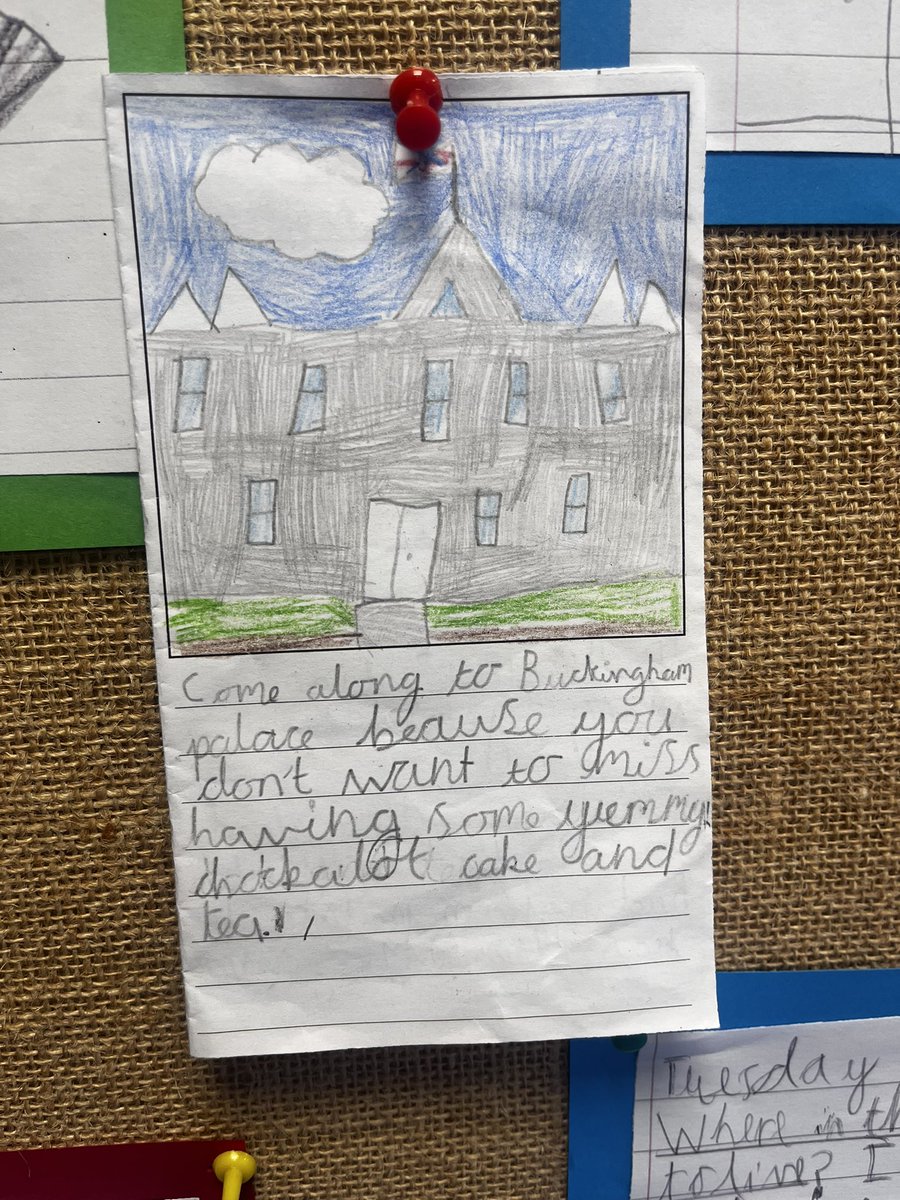 Come along to Buckingham
palace beause you
don't want to miss
having some yummy
cake and
tea.
Tuesday
Where in th
to live? I